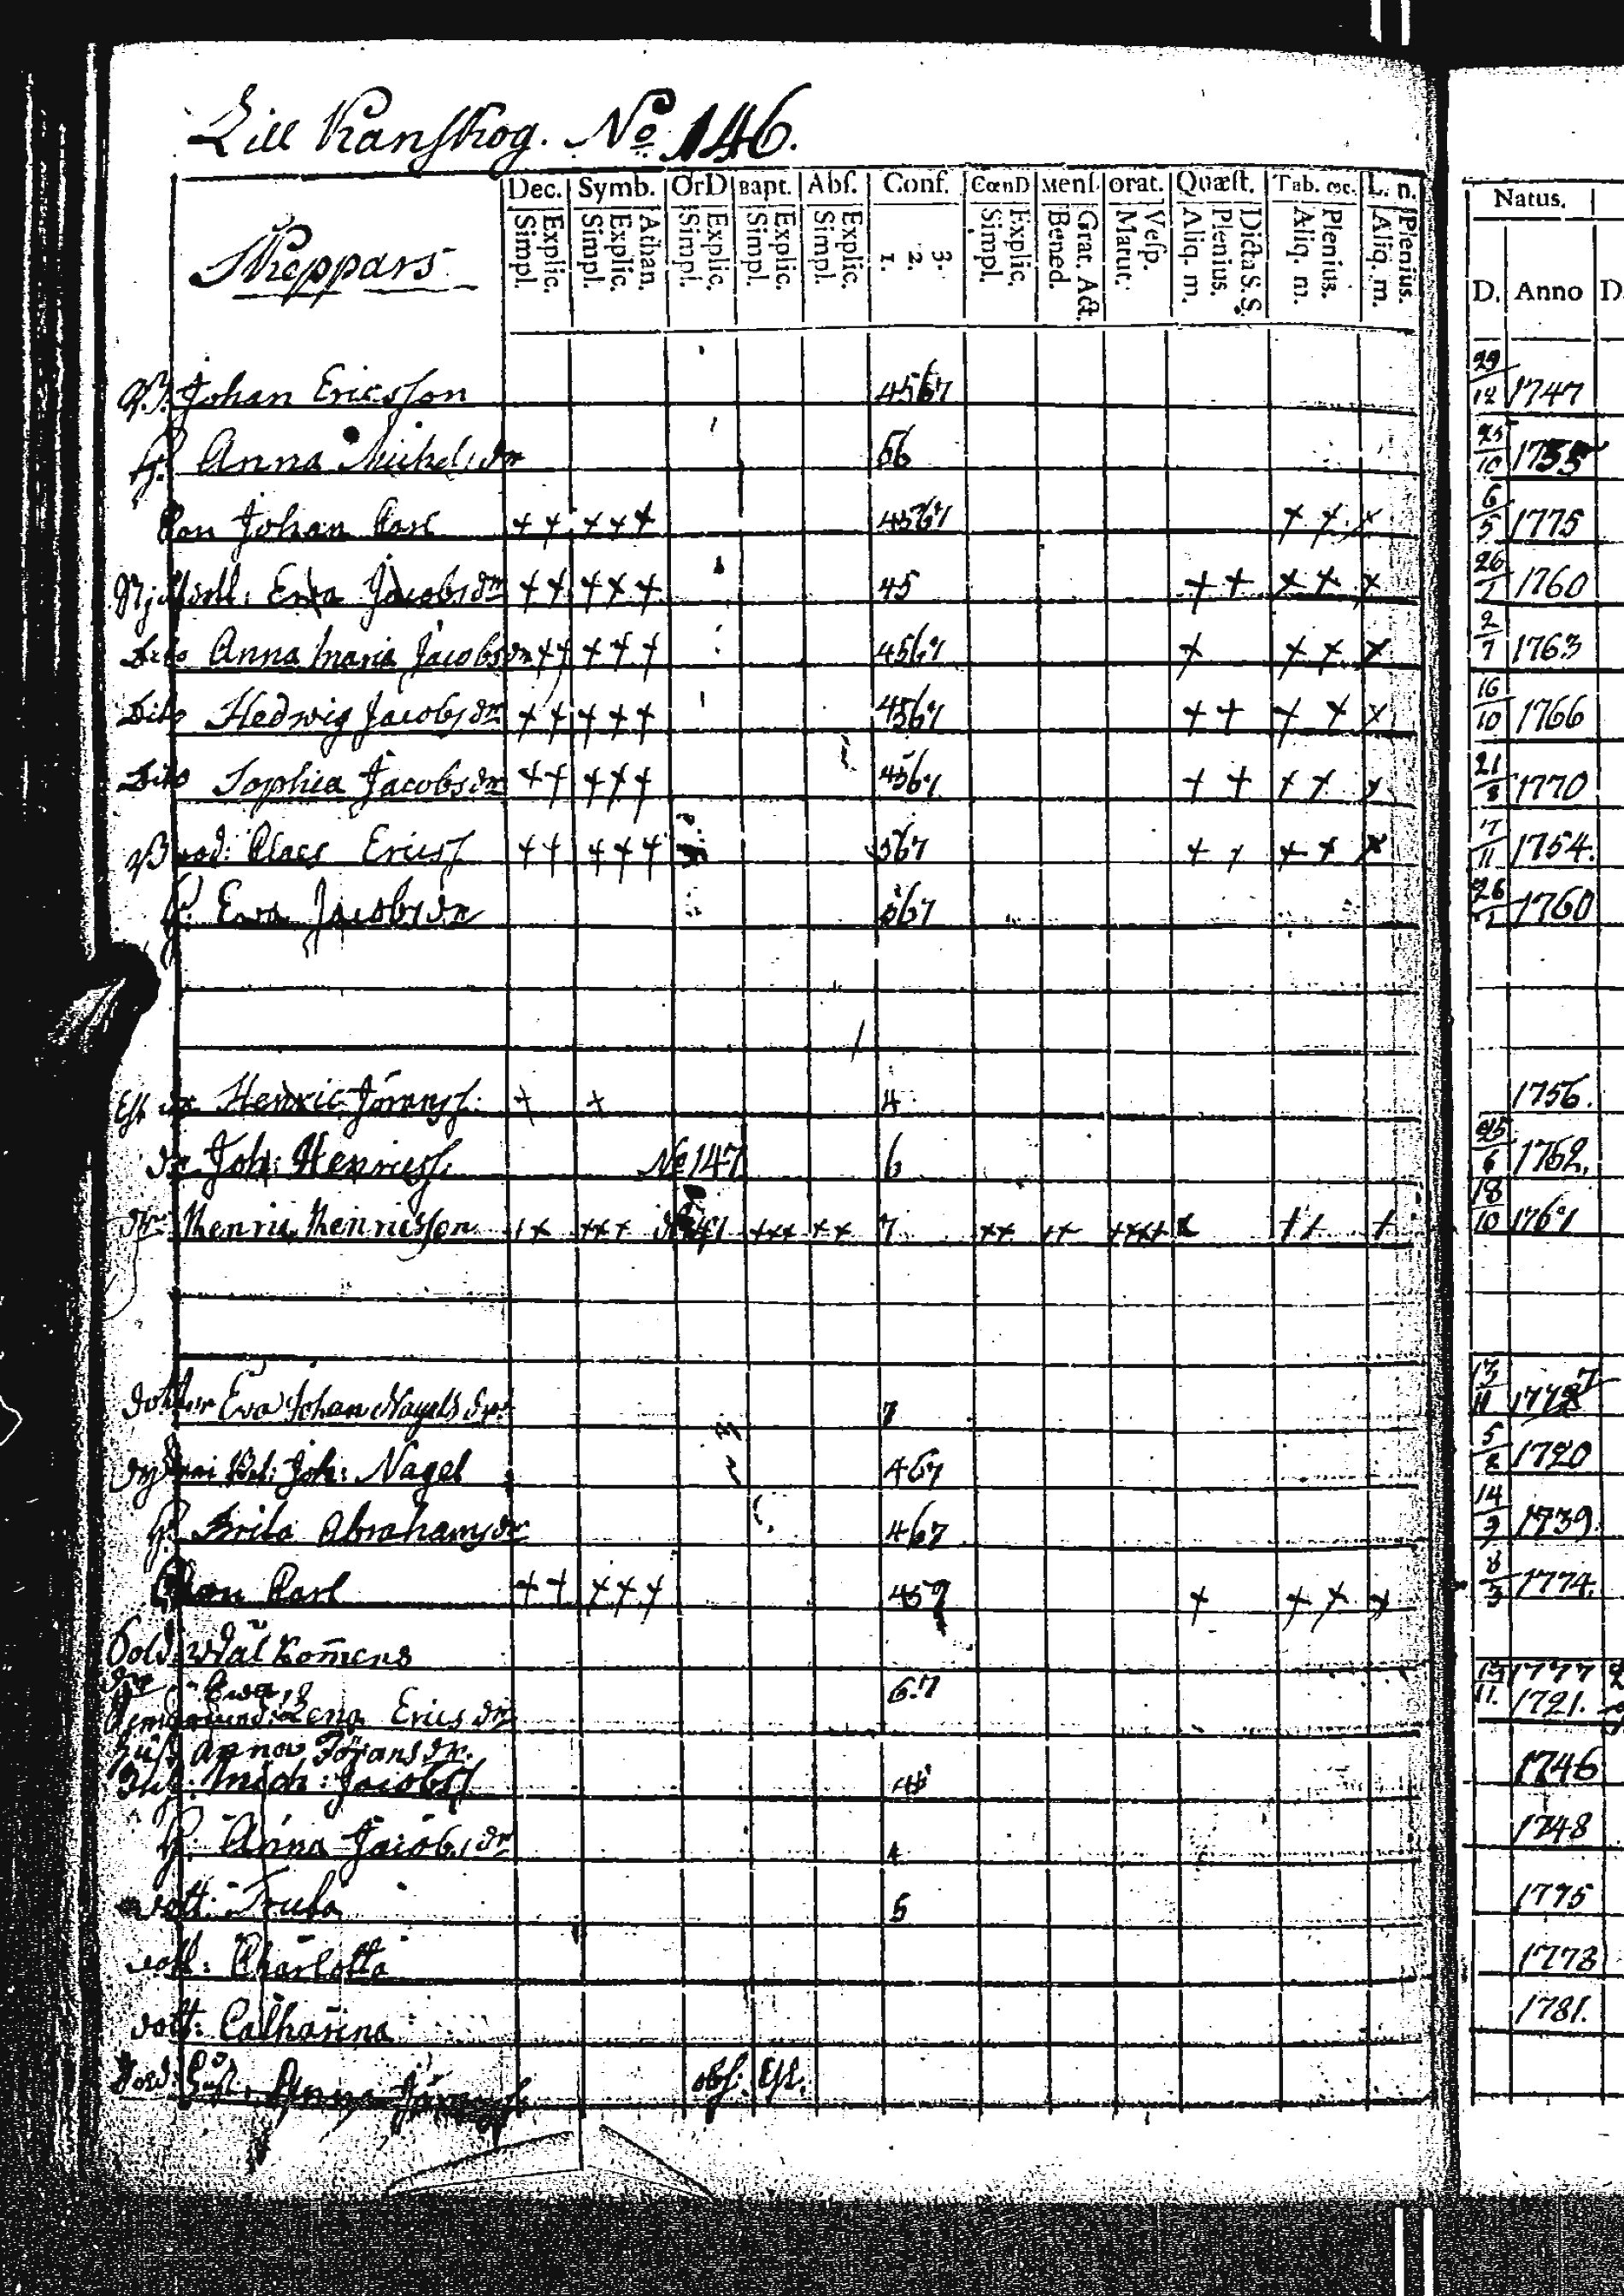 Lill Kanskog. No 146.
Dec. Symb. OrD Bapt. Abſ. Conf. CœnD Menſ. orat. Quæſt. Tab. œc. L. n. Natus.
Simpl. Explic. Simpl. Explic. Athan. Simpl. Explic. Simpl. Explic. Simpl. Explic. 1. 2. 3. Simpl. Explic. Bened. Grat. Act. Matut. Veſp. Aliq. m. Plenius. Dicta S.S. Aliq. m. Plenius. Aliq. m. Plenius. D. Anno D
Skeppars
Johan Ericsson 4567 29/12 1747
H. Anna Michelsdr 56 25/10 1755
Son Johan Carl ++ +++ 4567 ++ + 6/5 1775
Ewa Jacobsdr ++ +++ 45 ++ ++ + 26/1 1760
Dito Anna Maria Jacobsdr ++ +++ 4567 + ++ + 2/7 1763
Dito Hedwig Jacobsdr ++ +++ 4567 ++ ++ + 16/10 1766
Dito Sophia Jacobsdr ++ +++ 4567 ++ ++ + 21/8 1770
Brod: Claes Ericss ++ +++ 567 ++ ++ + 7/11 1754.
H. Ewa Jacobsdr 567 26/1 1760
dr Henric Göranss: + + 4 1756.
dr Joh: Henricss No 147 6 25/6 1762.
dr Henric Henricsson ++ +++ +++ ++ 7 ++ ++ ++++ ++ + 18/10 1767
dotter Eva Johan Nagels dr 7 13/11
Joh: Nagel 467 5/2 1720
H. Brita Abrahamsdr 467 14/9 1739.
Son Carl ++ +++ 457 + ++ + 8/3 1774.
Sold: Wälkomens
Ewa 6.7 1777
Lena Ericsdr 11. 1721.
Anna Göransdr.
Mich: Jacobss 45 1746
H. Anna Jacobsdr 4 1748
dott: 5 1775
dott: Charlotta 1778
dott: Catharina 1781.
Anna